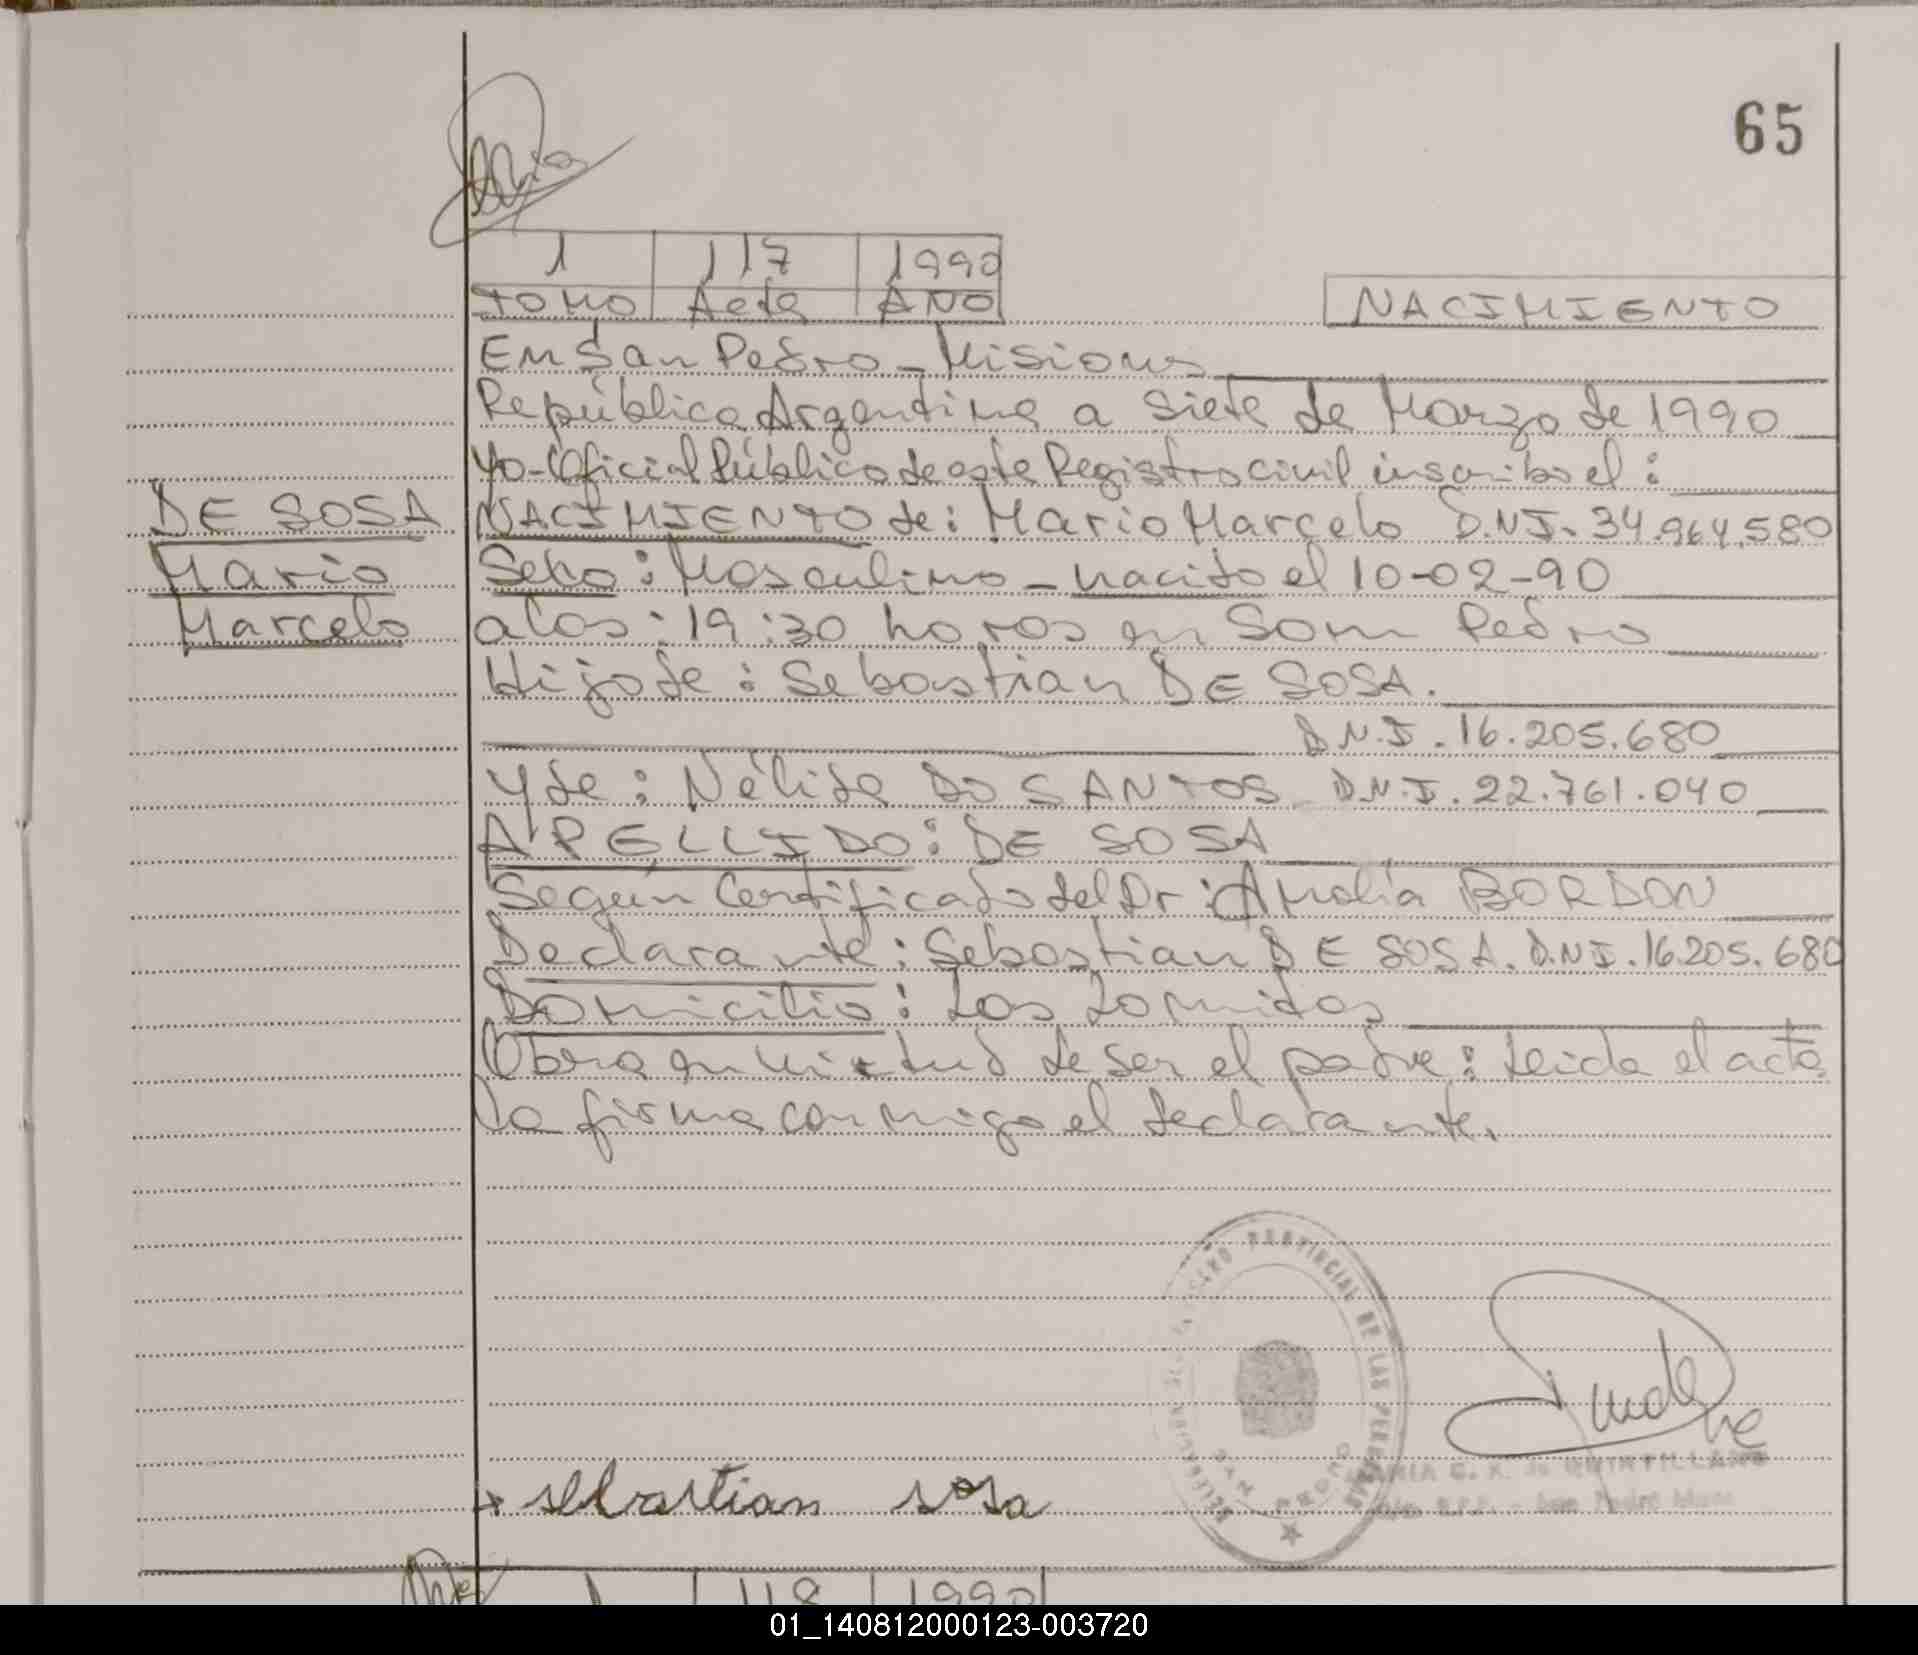 65
1 117 1990
TOMO Acta AÑO
NACIMIENTO
En San Pedro - Misiones
República Argentina a siete de Marzo de 1990
Yo-Oficial Público de este Registro civil inscribo el:
DE SOSA
Mario
Marcelo
NACIMIENTO de: Mario Marcelo D.N.I. 34.964.580
Sexo: Masculino - nacido el 10-02-90
a las: 19:30 horas en San Pedro
Hijo de: Sebastian DE SOSA.
D.N.I. 16.205.680
Y de: Nélida DO SANTOS D.N.I. 22.761.040
APELLIDO: DE SOSA
Según Certificado del Dr: Amalia BORDON
Declarante: Sebastian DE SOSA. D.N.I. 16.205.680
Domicilio: Las Lomitas
Obra en virtud de ser el padre: Leida el acta
la firma conmigo el declarante.
PROVINCIAL DE LAS PERSONAS
SAN PEDRO
de QUINTILLANO
San Pedro
sebastian sosa
1 118 1990
01_140812000123-003720